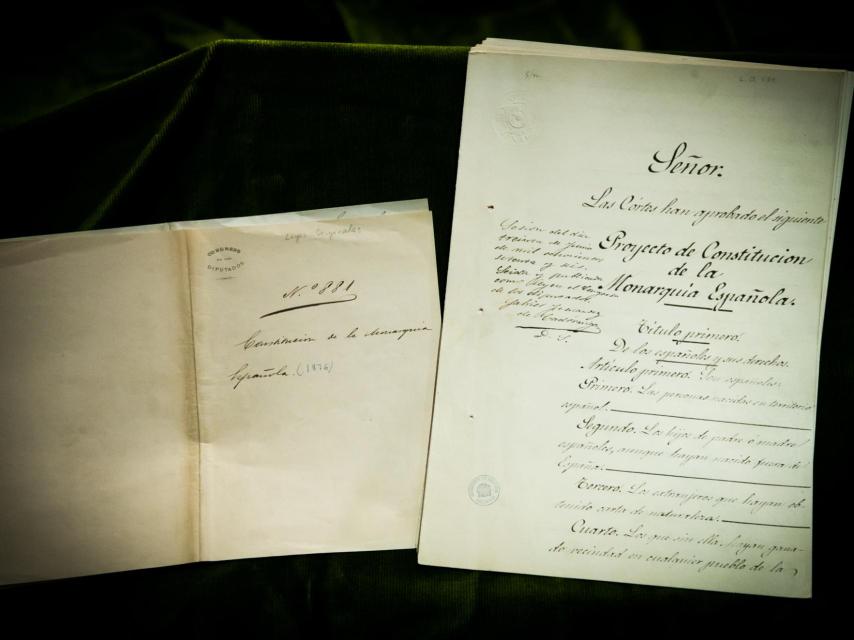 Leyes Originales
CONGRESO
DE LOS
DIPUTADOS
N.º 881
Constitucion de la Monarquia
Española. (1876)
Señor.
Las Córtes han aprobado el siguiente
Proyecto de Constitucion
de la
Monarquía Española.
Sesion del dia
treinta de Junio
de mil ochocientos
setenta y seis.
D. S.
Título primero.
De los españoles y sus derechos.
Artículo primero. Son españoles:
Primero. Las personas nacidas en territorio
español.
Segundo. Los hijos de padre ó madre
españoles, aunque hayan nacido fuera de
España.
Tercero. Los extranjeros que hayan ob-
tenido carta de naturaleza.
Cuarto. Los que sin ella hayan gana-
do vecindad en cualquier pueblo de la